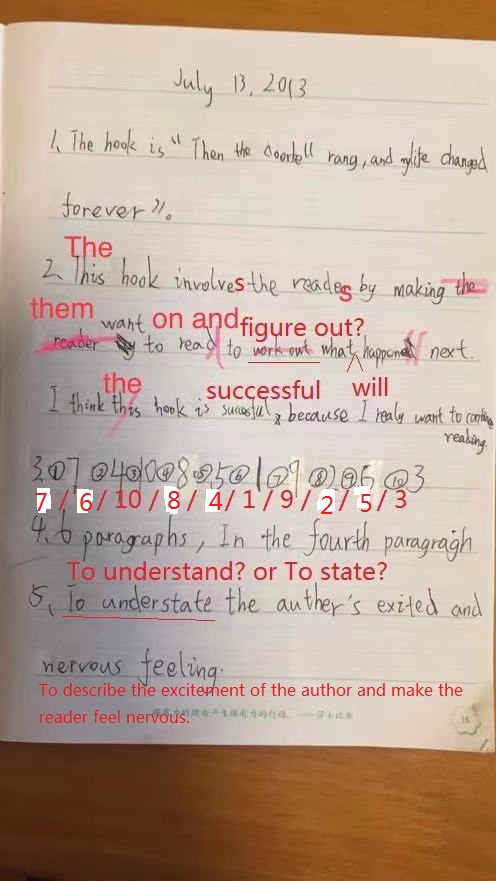 July 13, 2013
1、The hook is " Then the doorbell rang, and mylife changed
forever"。
The
2、This hook involves the readers by making the
them want on and figure out?
reader to read to work out what happened next.
the successful will
I think this hook is succesful, because I realy want to continue
reading.
3、①7 ②4 ③10 ④8 ⑤5 ⑥1 ⑦9 ⑧2 ⑨6 ⑩3
7 / 6 / 10 / 8 / 4 / 1 / 9 / 2 / 5 / 3
4、6 paragraphs, In the fourth paragragh
To understand? or To state?
5、To understate the auther's exited and
nervous feeling.
To describe the excitement of the author and make the
reader feel nervous.
强有力的理由产生强有力的行动。——莎士比亚
15